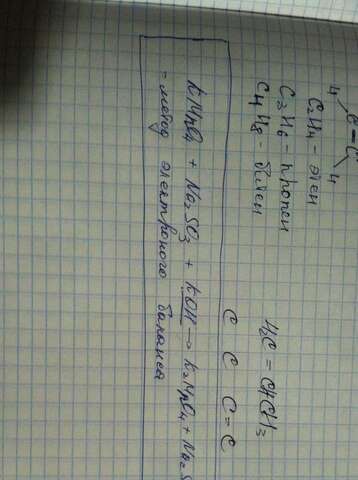 H C=C H
C2H4 - этен
C3H6 - пропен
C4H8 - бутен
H2C = CHCH3
C C C=C
KMnO4 + Na2SO3 + KOH → K2MnO4 + Na2S
- метод электроного баланса